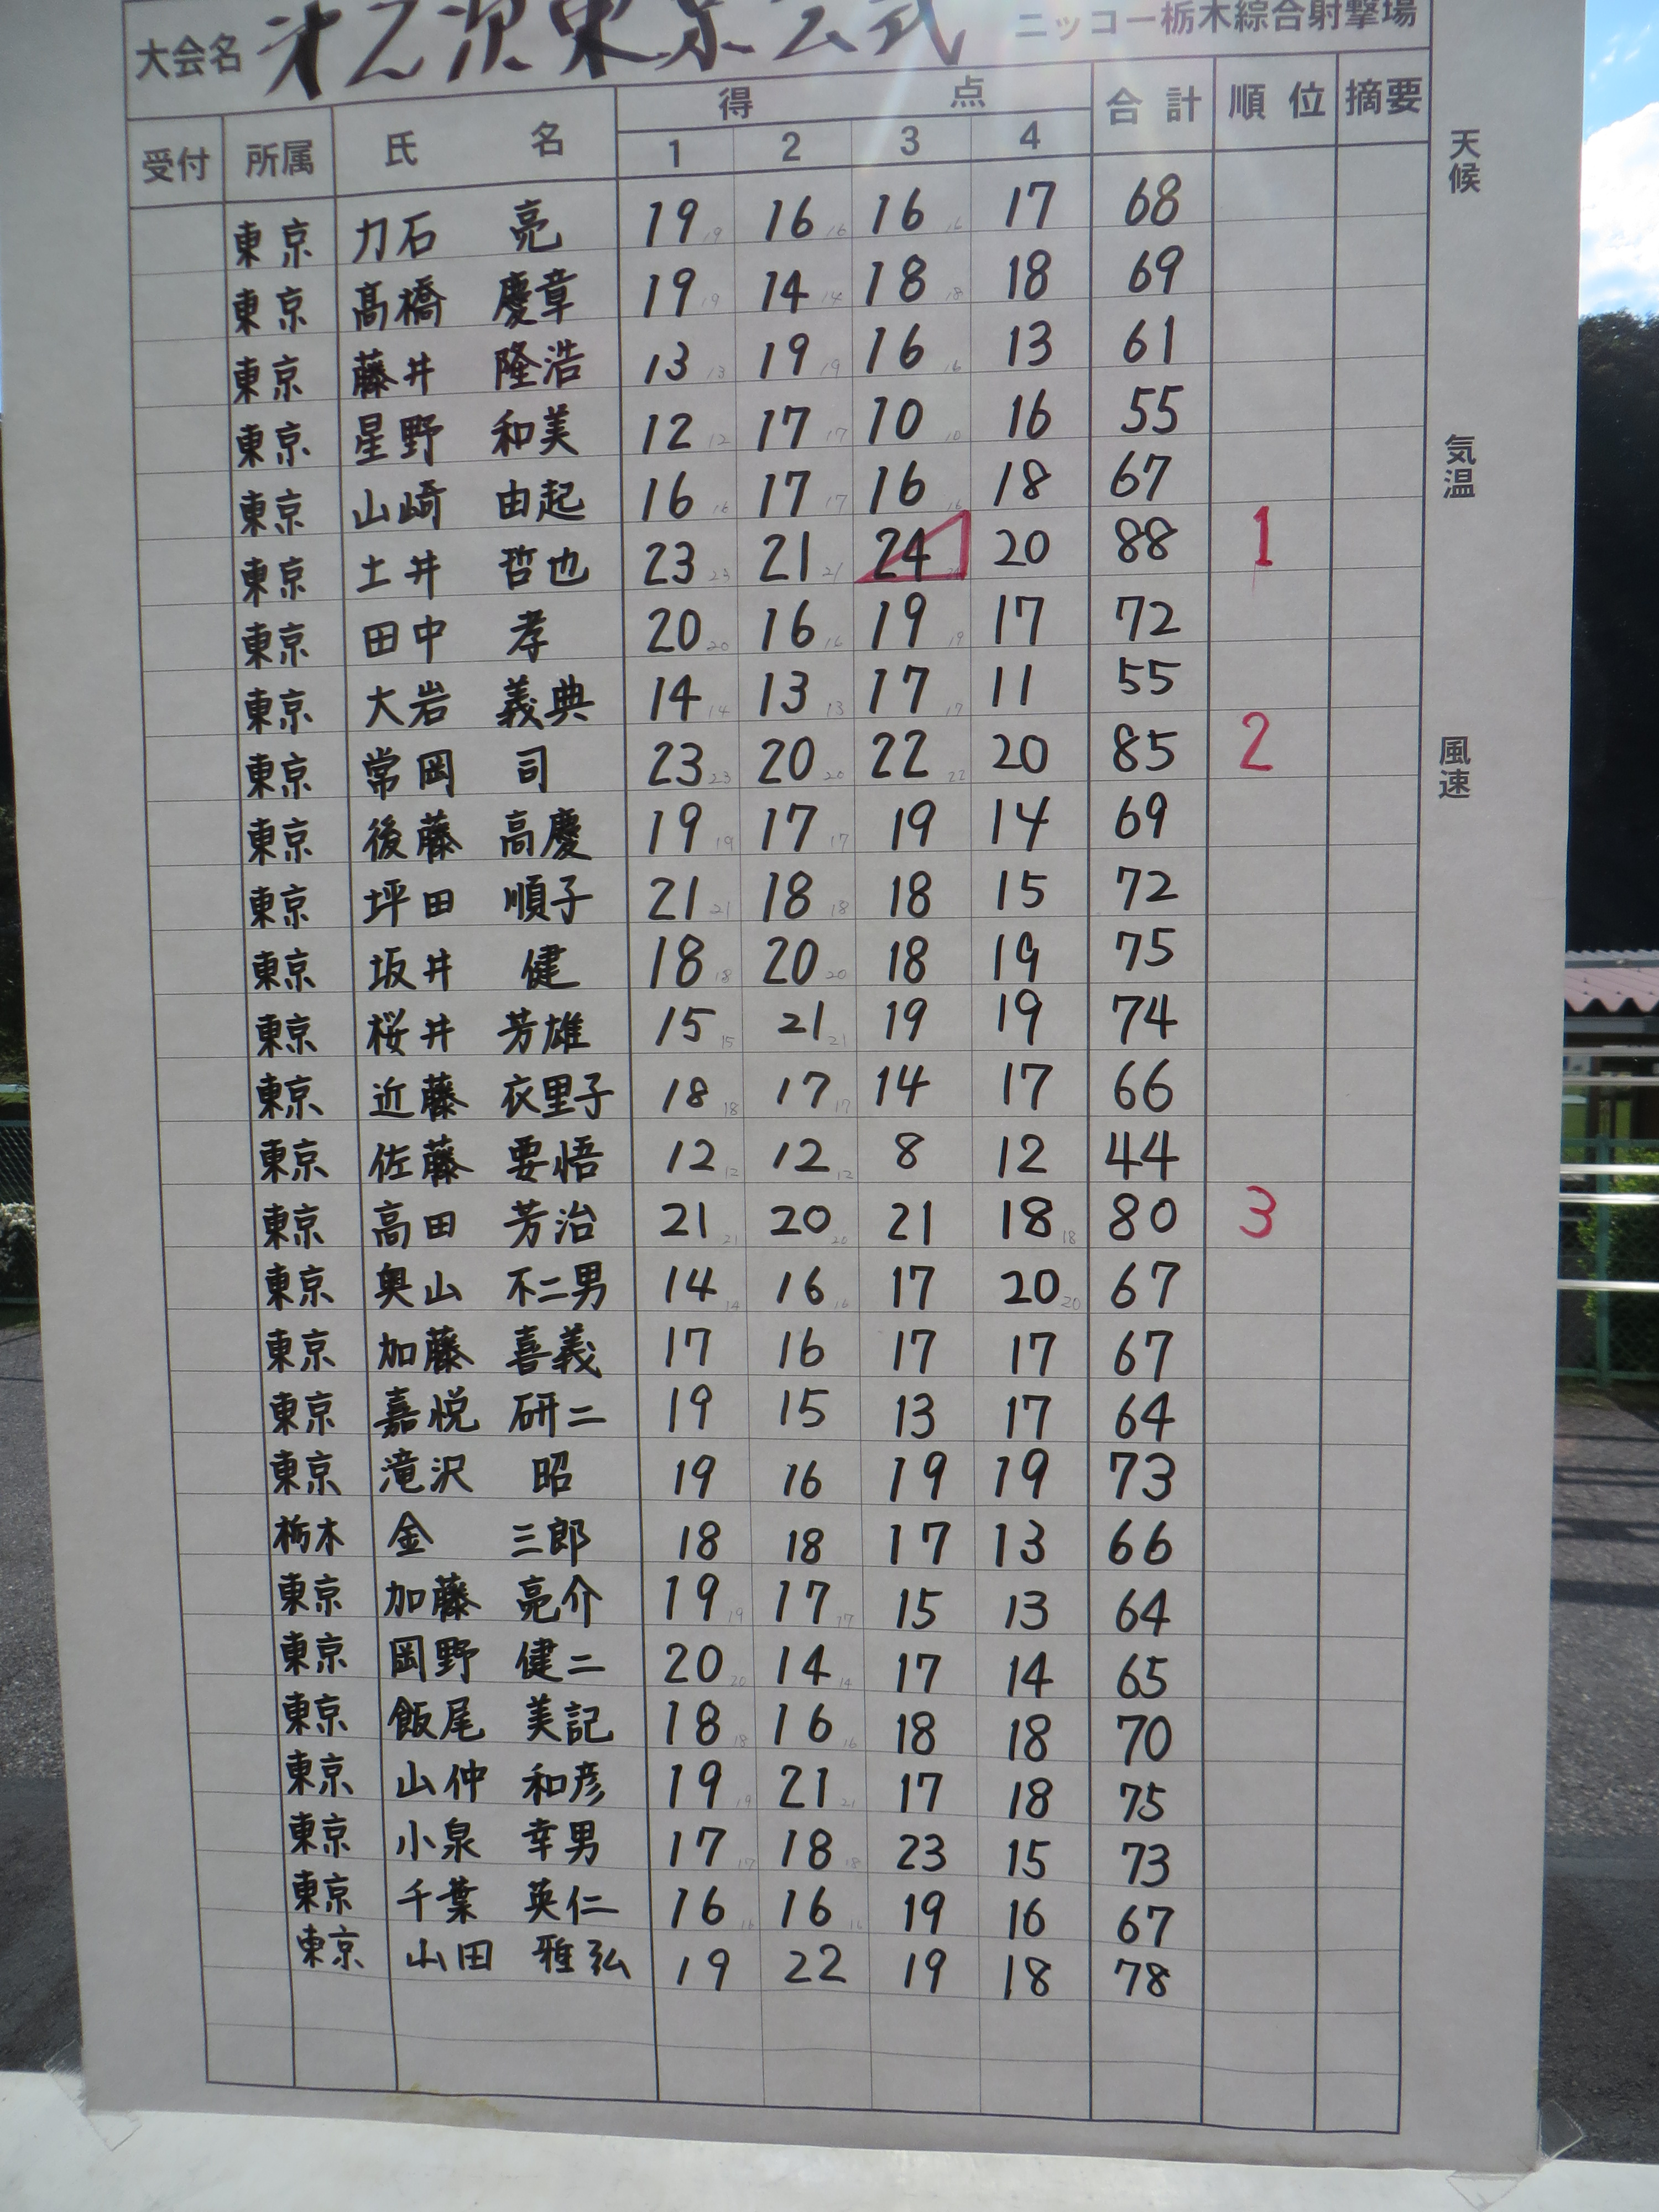 大会名 才2次東京公式 ニッコー栃木綜合射撃場
受付 所属 氏名 得点 1 2 3 4 合計 順位 摘要
東京 力石 亮 19 16 16 17 68
東京 高橋 慶章 19 14 18 18 69
東京 藤井 隆浩 13 19 16 13 61
東京 星野 和美 12 17 10 16 55
東京 山崎 由起 16 17 16 18 67
東京 土井 哲也 23 21 24 20 88 1
東京 田中 孝 20 16 19 17 72
東京 大岩 義典 14 13 17 11 55
東京 常岡 司 23 20 22 20 85 2
東京 後藤 高慶 19 17 19 14 69
東京 坪田 順子 21 18 18 15 72
東京 坂井 健 18 20 18 19 75
東京 桜井 芳雄 15 21 19 19 74
東京 近藤 衣里子 18 17 14 17 66
東京 佐藤 要悟 12 12 8 12 44
東京 高田 芳治 21 20 21 18 80 3
東京 奥山 不二男 14 16 17 20 67
東京 加藤 喜義 17 16 17 17 67
東京 嘉悦 研二 19 15 13 17 64
東京 滝沢 昭 19 16 19 19 73
栃木 金 三郎 18 18 17 13 66
東京 加藤 亮介 19 17 15 13 64
東京 岡野 健二 20 14 17 14 65
東京 飯尾 美記 18 16 18 18 70
東京 山仲 和彦 19 21 17 18 75
東京 小泉 幸男 17 18 23 15 73
東京 千葉 英仁 16 16 19 16 67
東京 山田 雅弘 19 22 19 18 78
天候
気温
風速